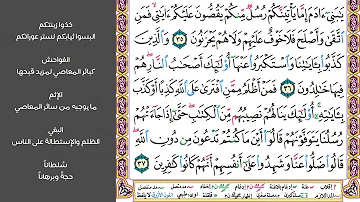 يَٰبَنِىٓ ءَادَمَ إِمَّا يَأْتِيَنَّكُمْ رُسُلٌ مِّنكُمْ يَقُصُّونَ عَلَيْكُمْ ءَايَٰتِى فَمَنِ
ٱتَّقَىٰ وَأَصْلَحَ فَلَا خَوْفٌ عَلَيْهِمْ وَلَا هُمْ يَحْزَنُونَ ٣٥ وَٱلَّذِينَ
كَذَّبُوا۟ بِـَٔايَٰتِنَا وَٱسْتَكْبَرُوا۟ عَنْهَآ أُو۟لَٰٓئِكَ أَصْحَٰبُ ٱلنَّارِ هُمْ
فِيهَا خَٰلِدُونَ ٣٦ فَمَنْ أَظْلَمُ مِمَّنِ ٱفْتَرَىٰ عَلَى ٱللَّهِ كَذِبًا أَوْ كَذَّبَ
بِـَٔايَٰتِهِۦٓ أُو۟لَٰٓئِكَ يَنَالُهُمْ نَصِيبُهُم مِّنَ ٱلْكِتَٰبِ حَتَّىٰٓ إِذَا جَآءَتْهُمْ
رُسُلُنَا يَتَوَفَّوْنَهُمْ قَالُوٓا۟ أَيْنَ مَا كُنتُمْ تَدْعُونَ مِن دُونِ ٱللَّهِ
قَالُوا۟ ضَلُّوا۟ عَنَّا وَشَهِدُوا۟ عَلَىٰٓ أَنفُسِهِمْ أَنَّهُمْ كَانُوا۟ كَٰفِرِينَ ٣٧
خذوا زينتكم
البسوا ثيابكم لستر عوراتكم
الفواحش
كبائر المعاصي لمزيد قبحها
الإثم
ما يوجبه من سائر المعاصي
البغي
الظلم والإستطالة على الناس
سلطاناً
حجة وبرهاناً